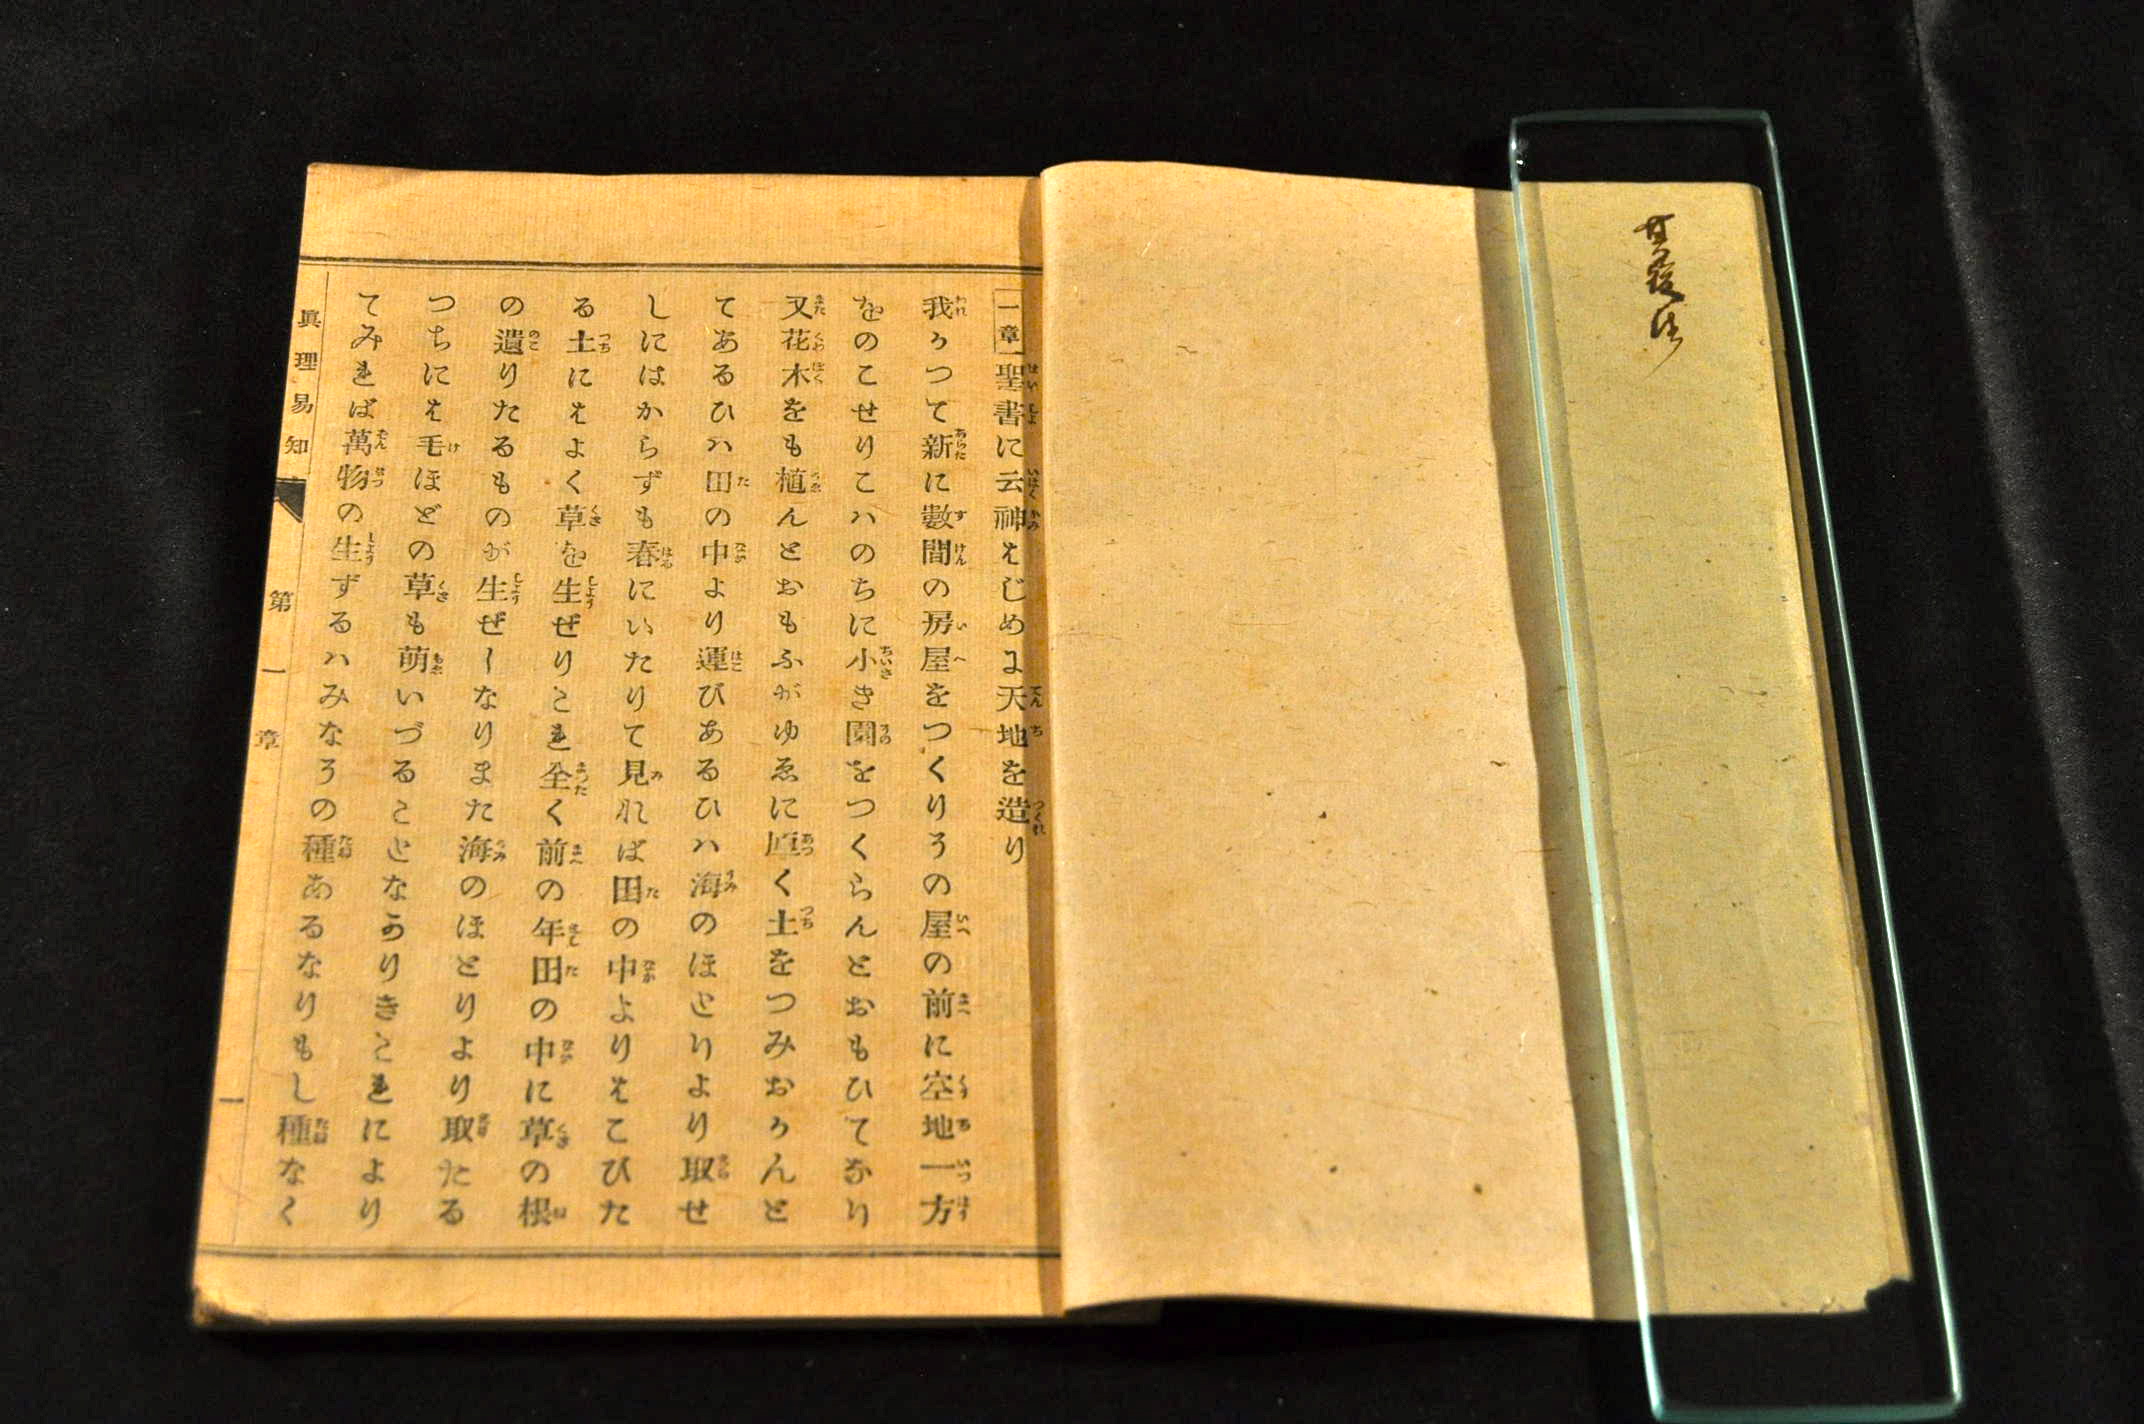 一章 聖書に云神はじめに天地を造り
我かつて新に數間の房屋をつくりその屋の前に空地一方
をのこせりこハのちに小き園をつくらんとおもひてなり
又花木をも植んとおもふがゆゑに厚く土をつみおかんと
てあるひハ田の中より運びあるひハ海のほとりより取せ
しにはからずも春にいたりて見れば田の中よりはこびた
る土にはよく草を生ぜりこれ全く前の年田の中に草の根
の遺りたるものが生ぜしなりまた海のほとりより取たる
つちには毛ほどの草も萌いづることなかりきこれにより
てみれば萬物の生ずるハみなその種あるなりもし種なく
眞理易知 第一章 一